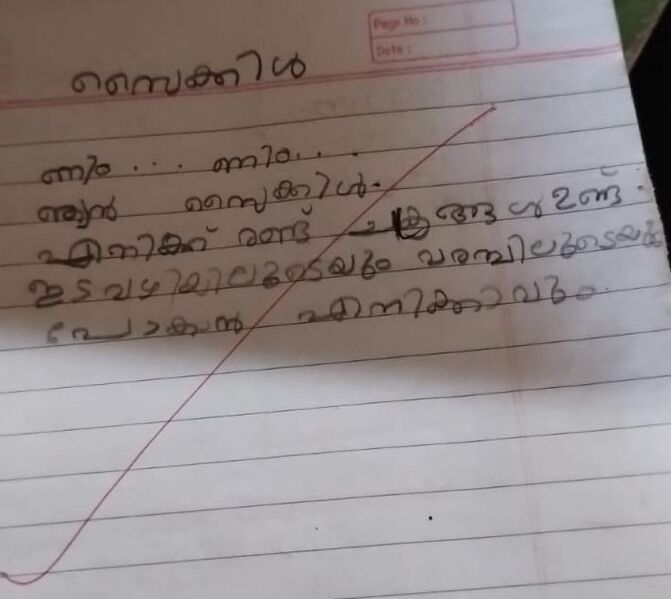 Page No :
Date :
സൈക്കിൾ
ണിം... ണിം...
ഞാൻ സൈക്കിൾ.
എനിക്ക് രണ്ട് ചക്രങ്ങൾ ഉണ്ട്.
ഇടവഴിയിലൂടെയും വരമ്പിലൂടെയും
പോകാൻ എനിക്കാവും.